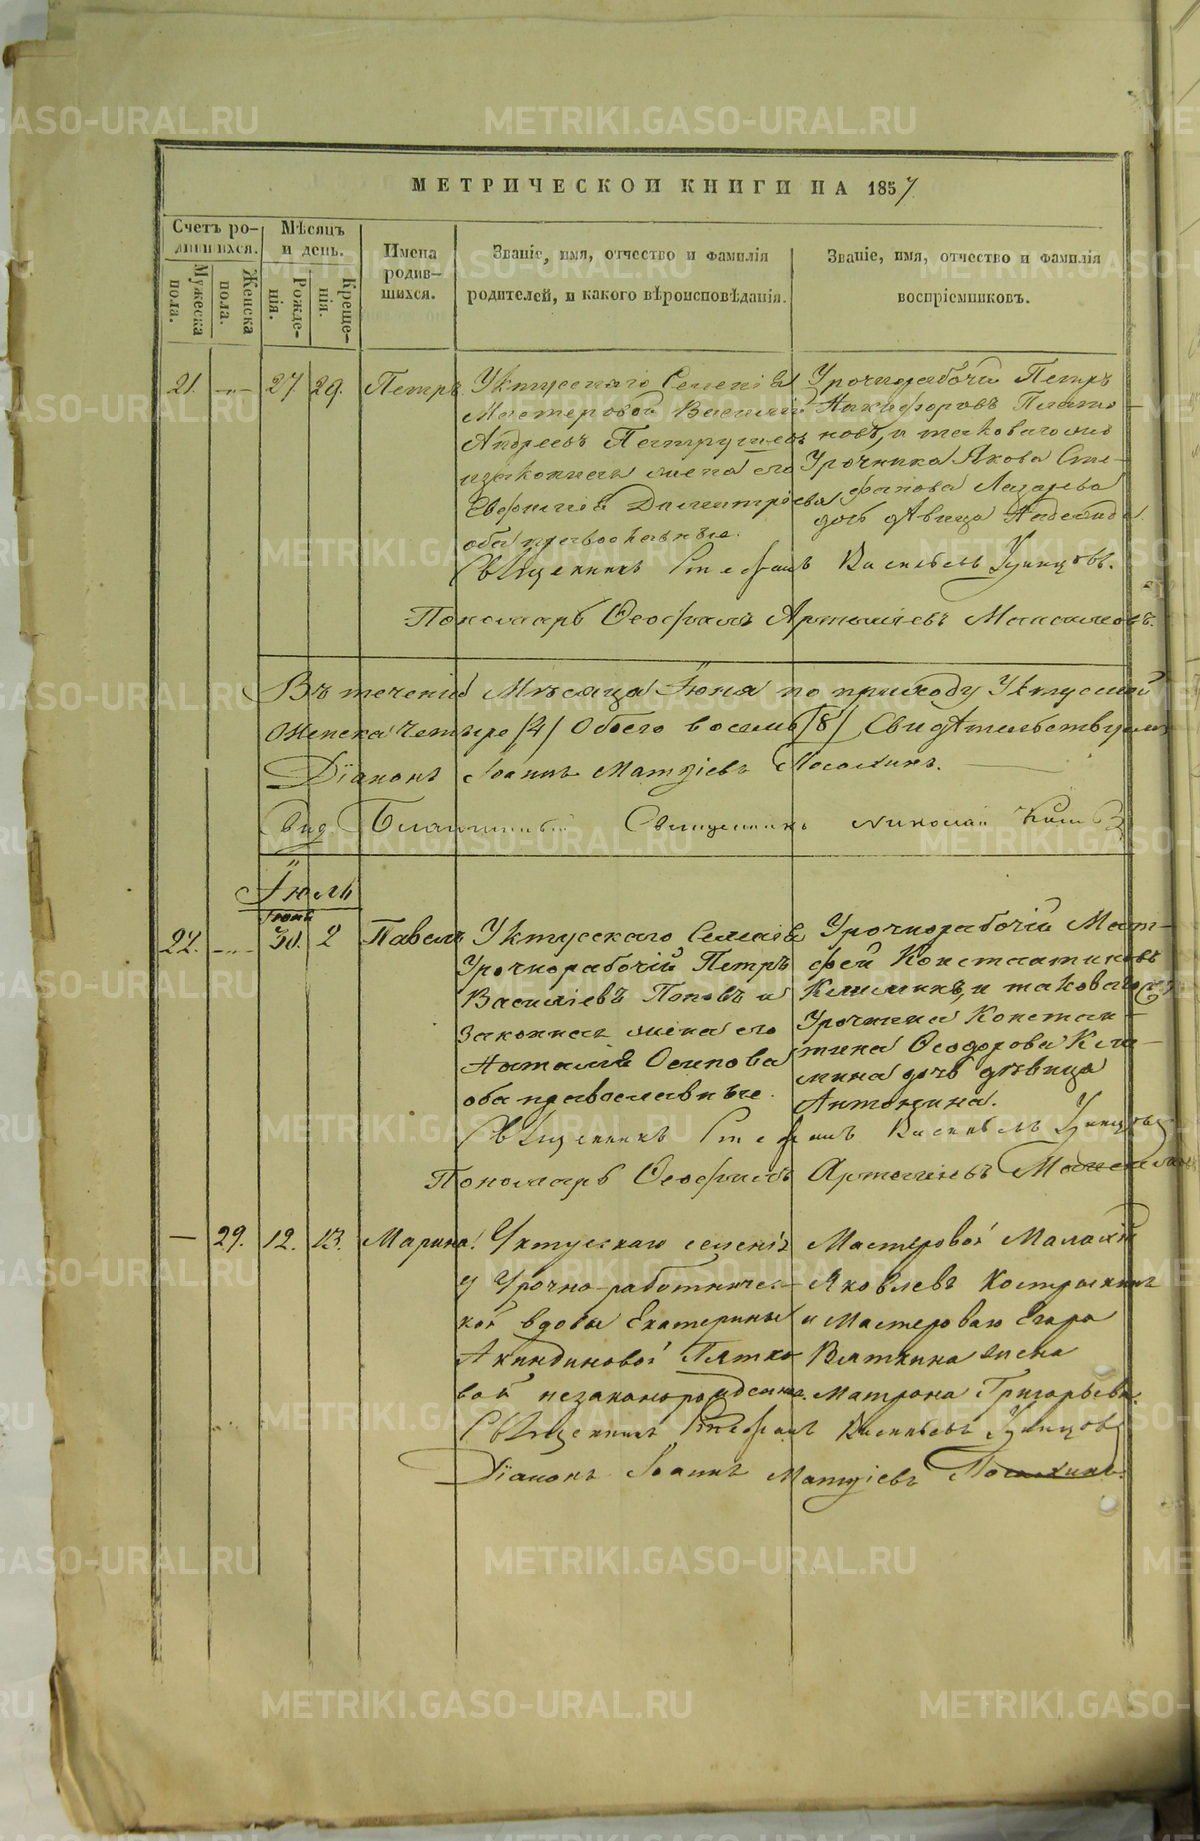 МЕТРИЧЕСКОЙ КНИГИ НА 1857
Счетъ ро-
дившихся.
Мужеска
пола.
Женска
пола.
Мѣсяцъ
и день.
Рожде-
нія.
Креще-
нія.
Имена
родив-
шихся.
Званіе, имя, отчество и фамилія
родителей, и какого вѣроисповѣданія.
Званіе, имя, отчество и фамилія
воспріемниковъ.
21. 27 29. Петръ
Уктусскаго Селенія
Мастеровой Василій
Андреевъ Патрушевъ
и законная жена его
Евфимія Димитріева
оба православные.
Урочнорабочій Петръ
Никифоровъ Плато-
новъ, и таковагоже
Урочника Якова Сте-
фанова Лазарева
дочь дѣвица
Священникъ Стефанъ Васильевъ Удинцовъ.
Пономарь Ѳеофилъ Артемьевъ
Въ теченіи Мѣсяца Іюня по приходу Уктусской
Женска Четыре /4/ Обоего восемь /8/ Свидѣтельствуемъ
Діаконъ Іоаннъ Матѳіевъ
Благочинный Священникъ Николай
Іюль
Іюня
22. 30. 2 Павелъ
Уктусскаго Селенія
Урочнорабочій Петръ
Василіевъ Поповъ и
Законная жена его
Наталія Осипова
оба православные.
Урочнорабочій Мат-
фей Константиновъ
Климинъ, и таковаго
Урочника Констан-
тина Ѳеодорова Кли-
мина дочь дѣвица
Антонина.
Священникъ Стефанъ Васильевъ Удинцовъ
Пономарь Ѳеофилъ Артемьевъ
— 29. 12. 13. Марина.
Уктускаго селенія
у Урочно-работничес-
кой вдовы Екатерины
Акиндиновой Пятко-
вой незаконорожденна.
Мастеровой Малахій
Яковлевъ Костроминъ
и Мастероваго Егора
Вяткина жена
Матрона Григорьева.
Священникъ Стефанъ Васильевъ Удинцовъ
Діаконъ Іоаннъ Матѳіевъ
METRIKI.GASO-URAL.RU